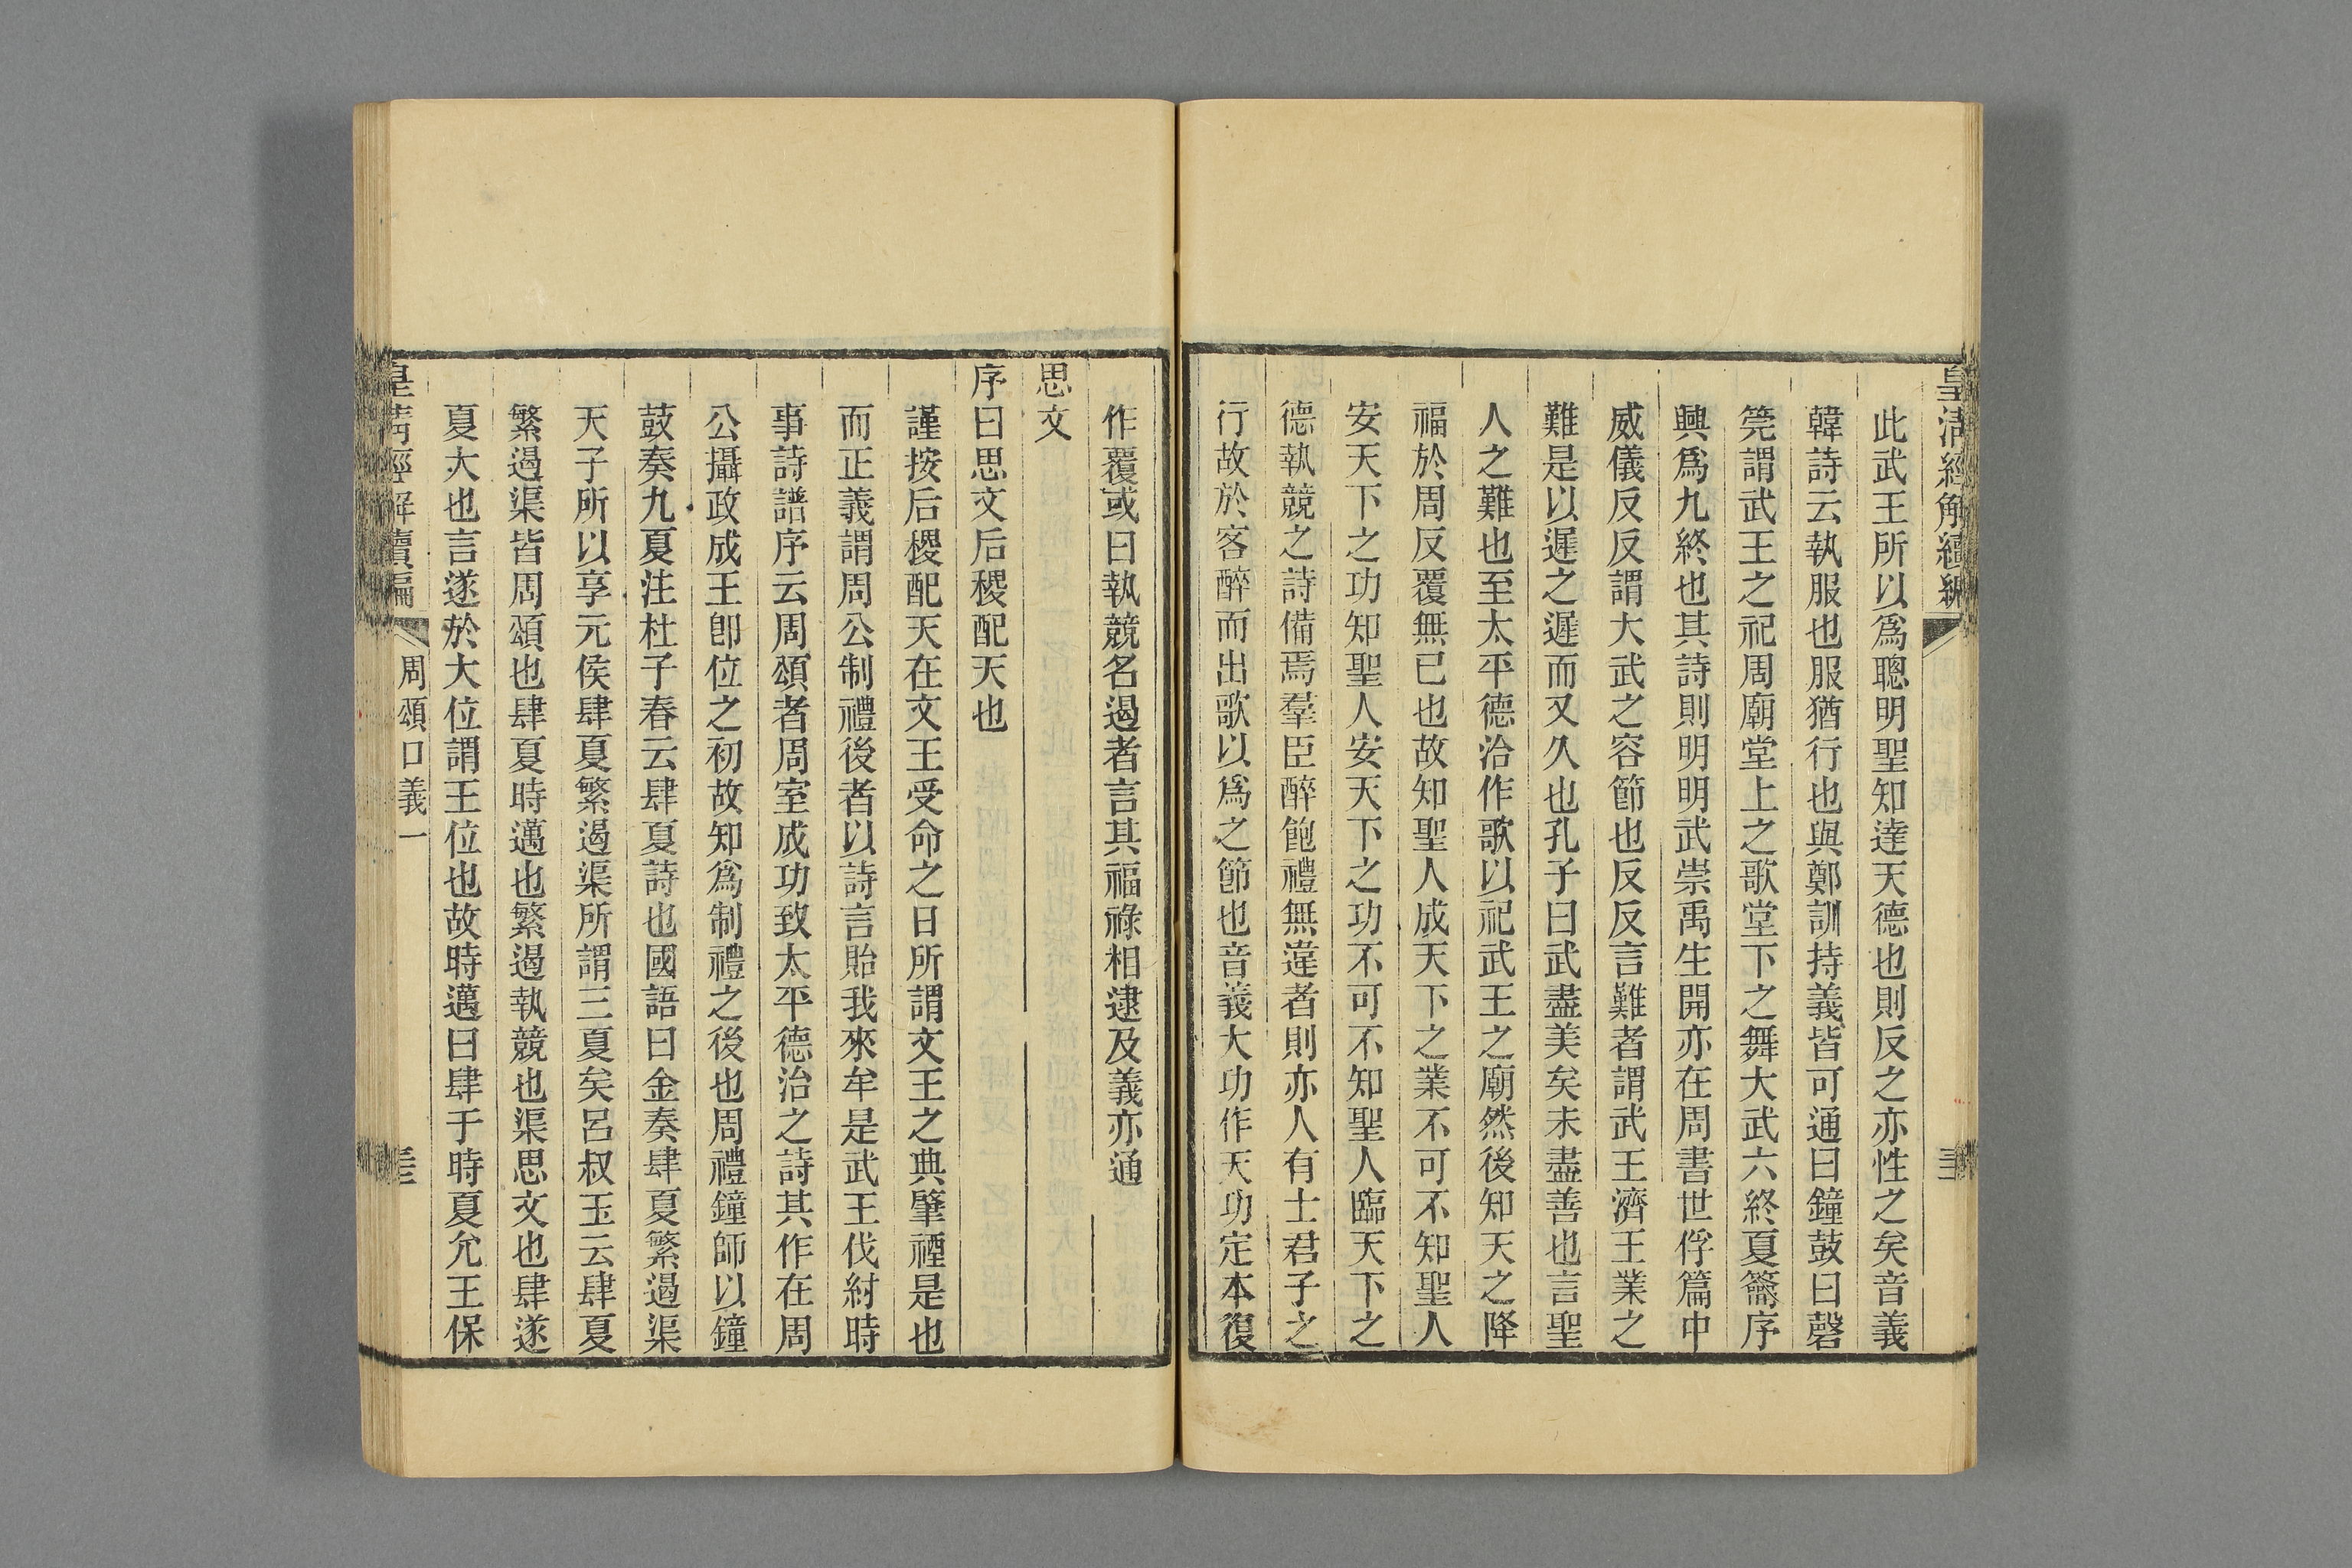 皇清經解續編
此武王所以爲聰明聖知達天德也則反之亦性之矣音義
韓詩云執服也服猶行也與鄭訓持義皆可通曰鐘鼓曰磬
筦謂武王之祀周廟堂上之歌堂下之舞大武六終夏籥序
興爲九終也其詩則明明武崇禹生開亦在周書世俘篇中
威儀反反謂大武之容節也反反言難者謂武王濟王業之
難是以遲之遲而又久也孔子曰武盡美矣未盡善也言聖
人之難也至太平德洽作歌以祀武王之廟然後知天之降
福於周反覆無已也故知聖人成天下之業不可不知聖人
安天下之功知聖人安天下之功不可不知聖人臨天下之
德執競之詩備焉羣臣醉飽禮無違者則亦人有士君子之
行故於客醉而出歌以爲之節也音義大功作天功定本復
作覆或曰執競名遏者言其福祿相逮及義亦通
思文
序曰思文后稷配天也
謹按后稷配天在文王受命之日所謂文王之典肇禋是也
而正義謂周公制禮後者以詩言貽我來牟是武王伐紂時
事詩譜序云周頌者周室成功致太平德洽之詩其作在周
公攝政成王卽位之初故知爲制禮之後也周禮鐘師以鐘
鼓奏九夏注杜子春云肆夏詩也國語曰金奏肆夏繁遏渠
天子所以享元侯肆夏繁遏渠所謂三夏矣呂叔玉云肆夏
繁遏渠皆周頌也肆夏時邁也繁遏執競也渠思文也肆遂
夏大也言遂於大位謂王位也故時邁曰肆于時夏允王保
皇清經解續編 周頌口義一